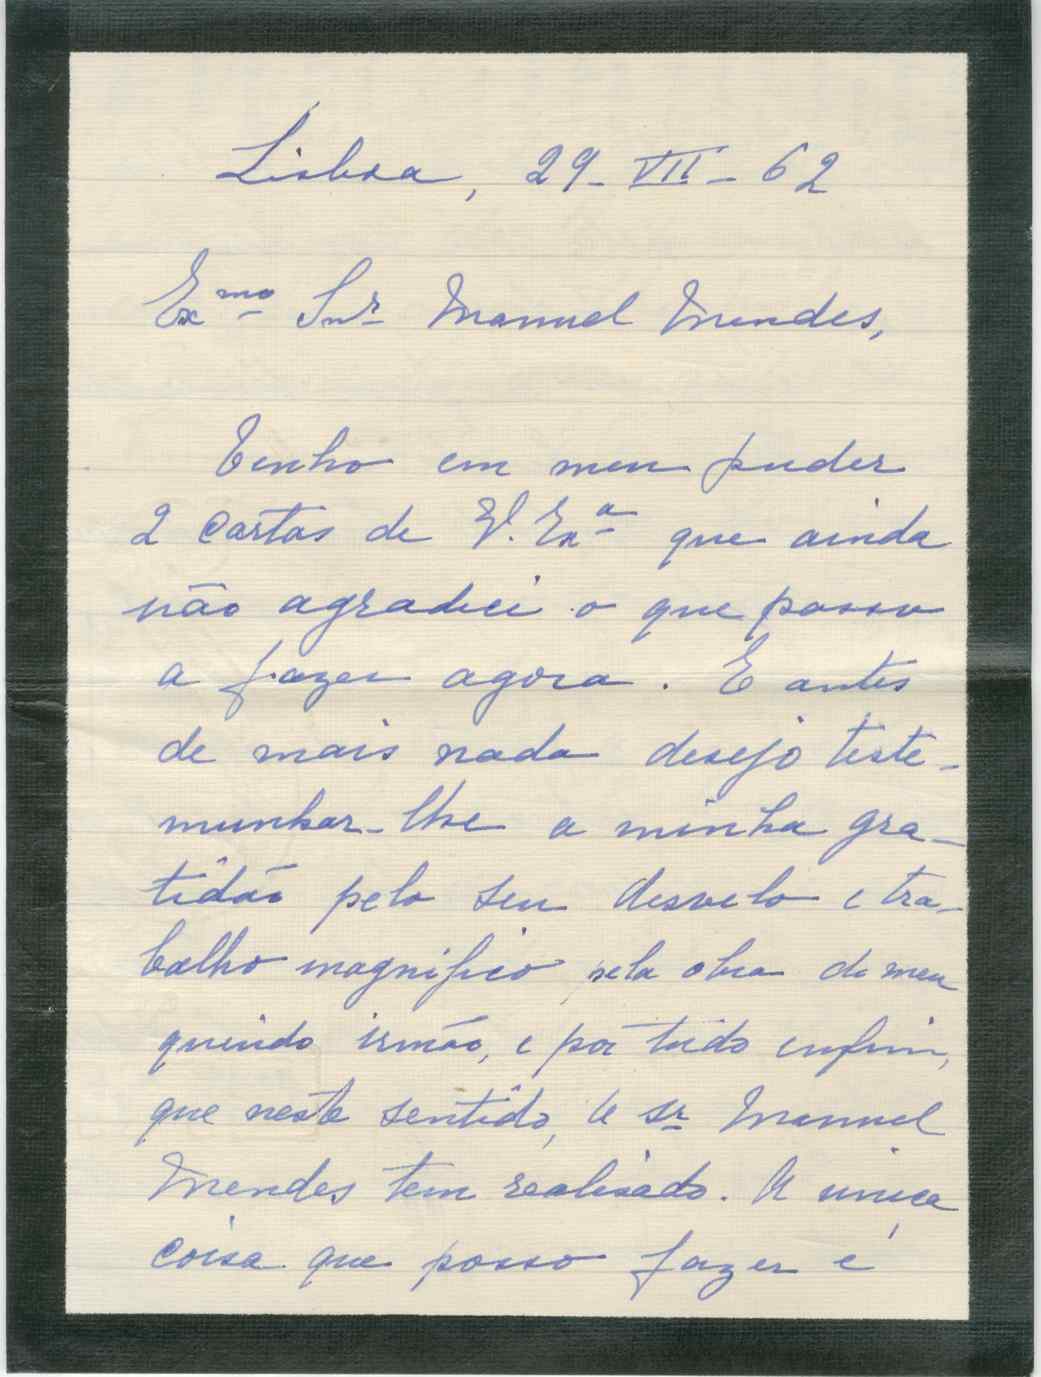 Lisboa, 29-VII-62
Exmo Snr Manuel Mendes,
Tenho em meu puder
2 cartas de V. Exa que ainda
não agradeci o que passo
a fazer agora. E antes
de mais nada desejo teste-
munhar-lhe a minha gra-
tidão pelo seu desvelo e tra-
balho magnifico pela obra do meu
querido irmão, e por tudo enfim,
que neste sentido, o sr Manuel
Mendes tem realisado. A única
coisa que posso fazer é